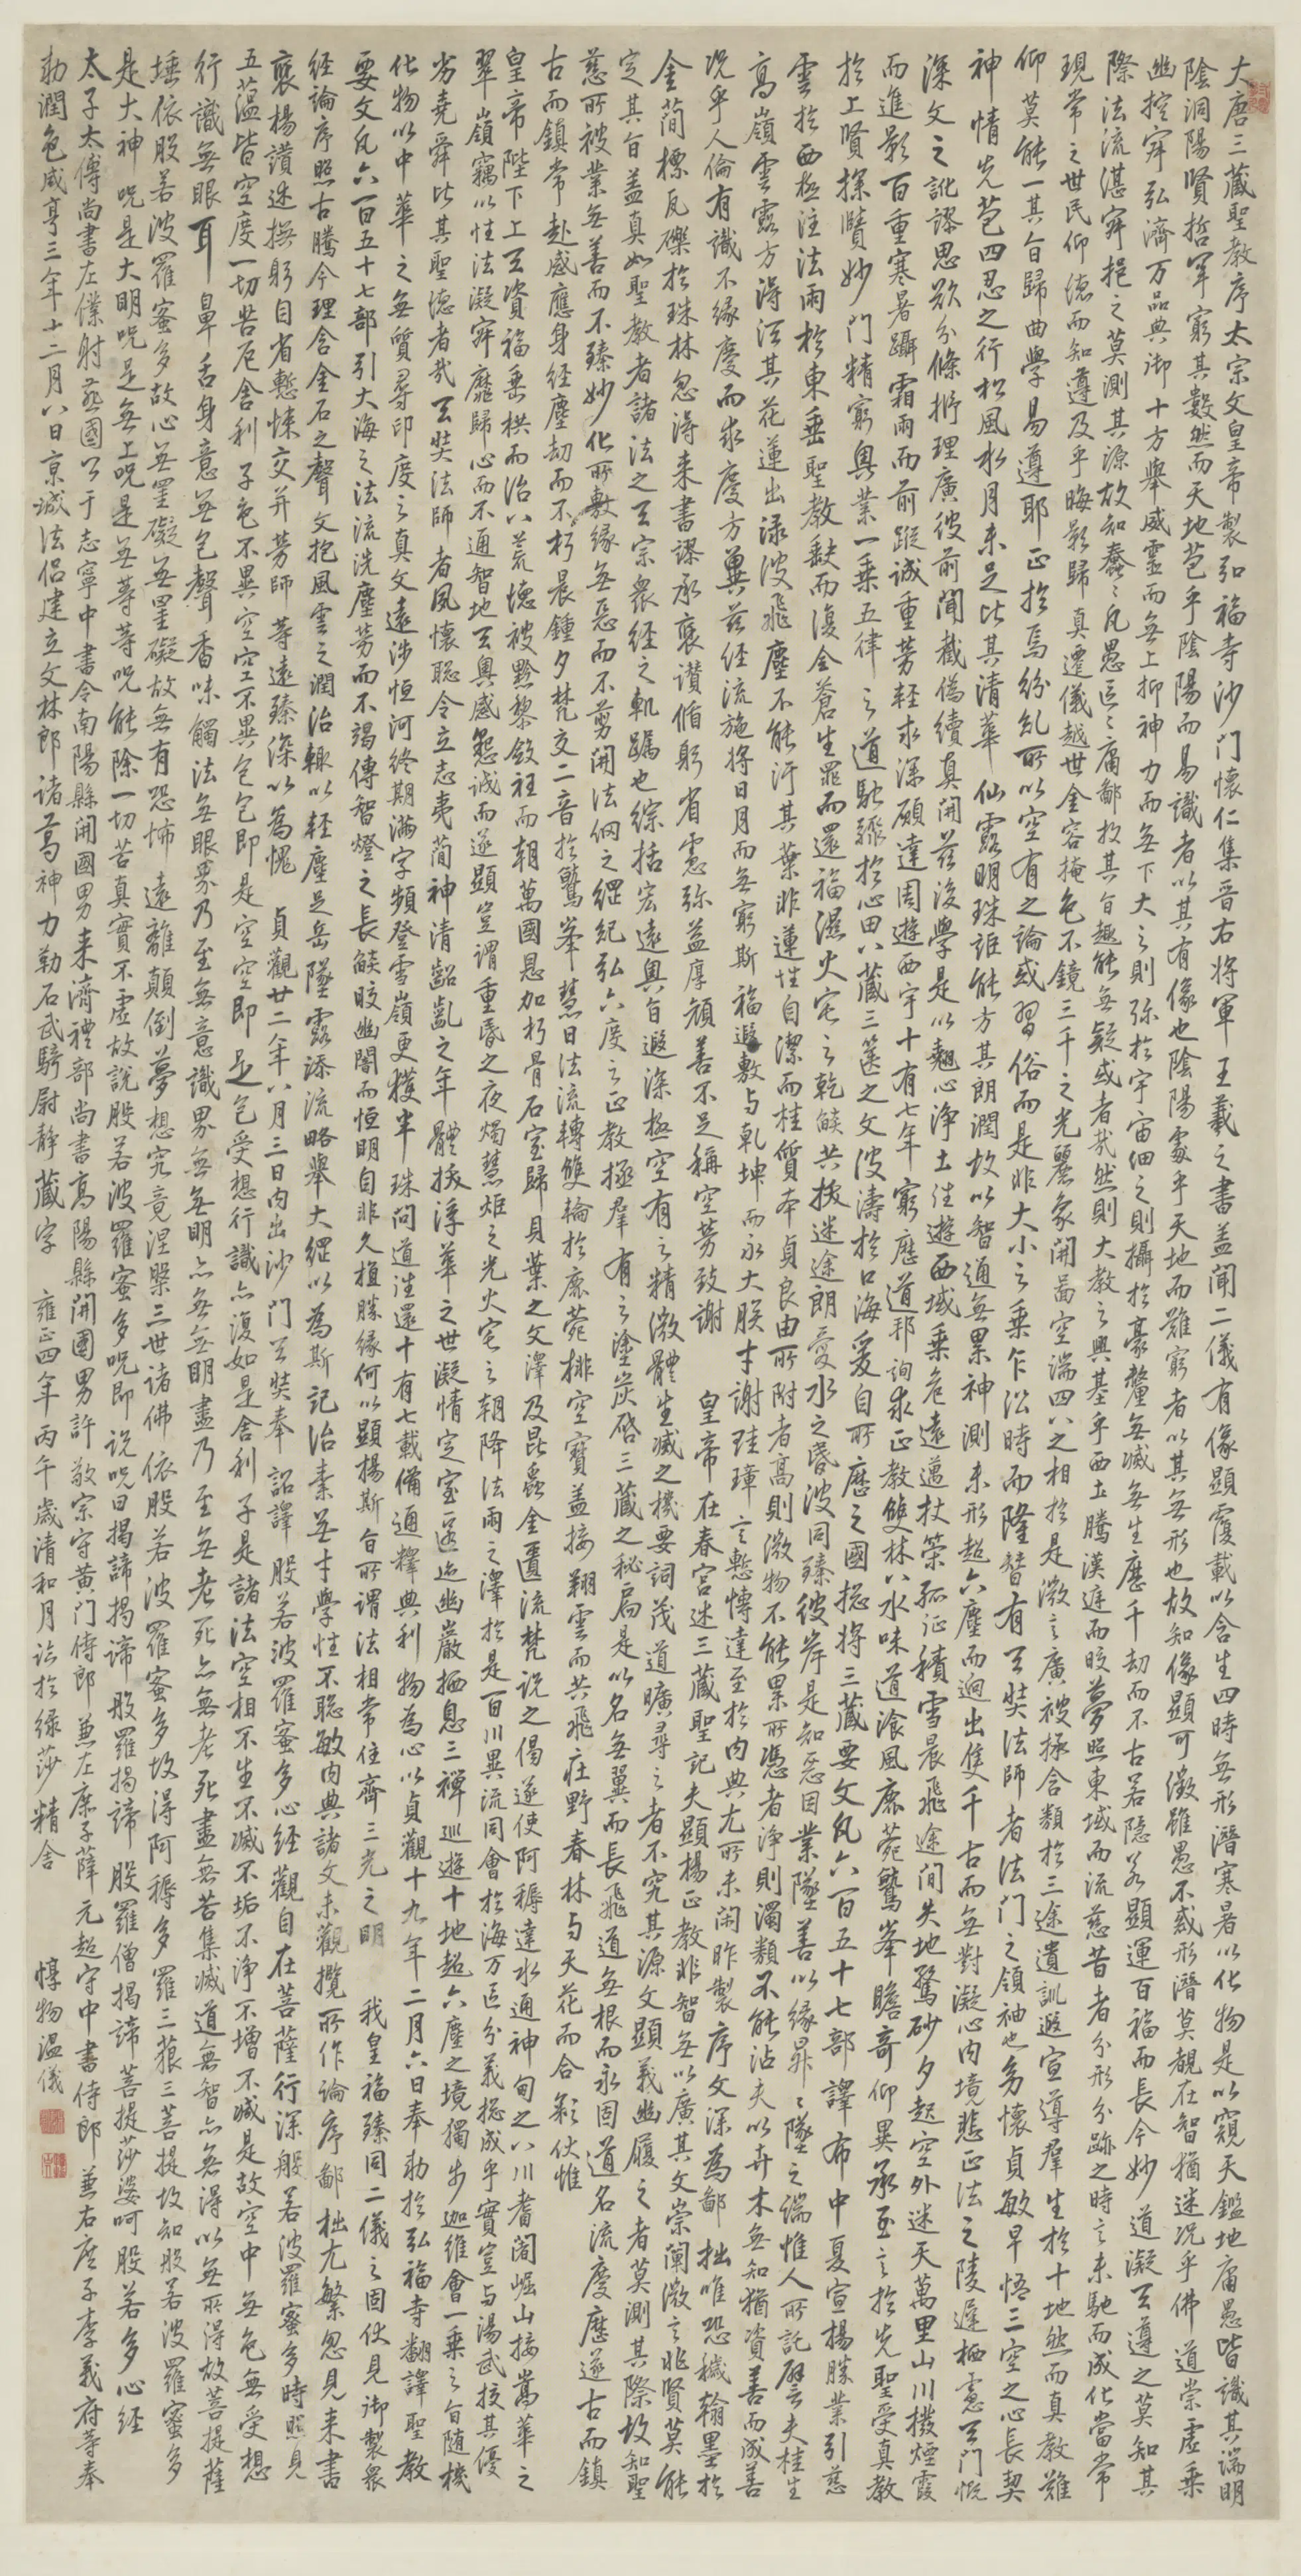 大唐三藏聖教序太宗文皇帝製弘福寺沙門懷仁集晉右將軍王羲之書蓋聞二儀有像顯覆載以含生四時無形潛寒暑以化物是以窺天鑑地庸愚皆識其端明
陰洞陽賢哲罕窮其數然而天地苞乎陰陽而易識者以其有像也陰陽處乎天地而難窮者以其無形也故知像顯可徵雖愚不惑形潛莫覩在智猶迷況乎佛道崇虛乘
幽控寂弘濟万品典御十方舉威靈而無上抑神力而無下大之則弥於宇宙細之則攝於豪釐無滅無生歷千劫而不古若隱若顯運百福而長今妙道凝玄遵之莫知其
際法流湛寂挹之莫測其源故知蠢蠢凡愚區區庸鄙投其旨趣能無疑或者哉然則大教之興基乎西土騰漢庭而皎夢照東域而流慈昔者分形分跡之時言未馳而成化當常
現常之世民仰德而知遵及乎晦影歸真遷儀越世金容掩色不鏡三千之光麗象開啚空端四八之相於是微言廣被拯含類於三途遺訓遐宣導羣生於十地然而真教難
仰莫能一其旨歸曲學易遵耶正於焉紛糺所以空有之論或習俗而是非大小之乘乍沿時而隆替有玄奘法師者法門之領袖也幼懷貞敏早悟三空之心長契
神情先苞四忍之行松風水月未足比其清華仙露明珠詎能方其朗潤故以智通無累神測未形超六塵而迥出隻千古而無對凝心內境悲正法之陵遲栖慮玄門慨
深文之訛謬思欲分條㭊理廣彼前聞截偽續真開茲後學是以翹心淨土往遊西域乘危遠邁杖策孤征積雪晨飛途間失地驚砂夕起空外迷天萬里山川撥煙霞
而進影百重寒暑躡霜雨而前蹤誠重勞輕求深願達周遊西宇十有七年窮歷道邦詢求正教雙林八水味道飡風鹿菀鷲峯瞻奇仰異承至言於先聖受真教
於上賢探賾妙門精窮奧業一乘五律之道馳驟於心田八藏三篋之文波濤於口海爰自所歷之國揔將三藏要文凡六百五十七部譯布中夏宣揚勝業引慈
雲於西極注法雨於東垂聖教缺而復全蒼生罪而還福濕火宅之乾燄共拔迷途朗愛水之昏波同臻彼岸是知惡因業墜善以緣昇昇墜之端惟人所託譬夫桂生
高嶺雲露方得泫其花蓮出淥波飛塵不能汙其葉非蓮性自潔而桂質本貞良由所附者高則微物不能累所憑者淨則濁類不能沾夫以卉木無知猶資善而成善
況乎人倫有識不緣慶而求慶方冀茲經流施將日月而無窮斯福遐敷与乾坤而永大朕才謝珪璋言慙博達至於內典尤所未閑昨製序文深為鄙拙唯恐穢翰墨於
金簡標瓦礫於珠林忽得來書謬承褒讚循躬省慮弥益厚顔善不足稱空勞致謝 皇帝在春宮述三藏聖記夫顯揚正教非智無以廣其文崇闡微言非賢莫能
定其旨蓋真如聖教者諸法之玄宗衆經之軌躅也綜括宏遠奧旨遐深極空有之精微體生滅之機要詞茂道曠尋之者不究其源文顯義幽履之者莫測其際故知聖
慈所被業無善而不臻妙化所敷緣無惡而不剪開法網之綱紀弘六度之正教拯羣有之塗炭啓三藏之秘扃是以名無翼而長飛道無根而永固道名流慶歷遂古而鎮
古而鎮常赴感應身經塵劫而不朽晨鍾夕梵交二音於鷲峯慧日法流轉雙輪於鹿菀排空寶蓋接翔雲而共飛莊野春林与天花而合彩伏惟
皇帝陛下上玄資福垂拱而治八荒德被黔黎斂衽而朝萬國恩加朽骨石室歸貝葉之文澤及昆蟲金匱流梵說之偈遂使阿耨達水通神甸之八川耆闍崛山接嵩華之
翠嶺竊以性法凝寂靡歸心而不通智地玄奧感懇誠而遂顯豈謂重昏之夜燭慧炬之光火宅之朝降法雨之澤於是百川異流同會於海万區分義揔成乎實豈与湯武校其優
劣堯舜比其聖德者哉玄奘法師者夙懷聡令立志夷簡神清齠齔之年體拔浮華之世凝情定室匿迹幽巖栖息三禪巡遊十地超六塵之境獨步迦維會一乘之旨隨機
化物以中華之無質尋印度之真文遠涉恒河終期滿字頻登雪嶺更獲半珠問道往還十有七載備通釋典利物為心以貞觀十九年二月六日奉勅於弘福寺翻譯聖教
要文凡六百五十七部引大海之法流洗塵勞而不竭傳智燈之長燄皎幽闇而恒明自非久植勝緣何以顯揚斯旨所謂法相常住齊三光之明 我皇福臻同二儀之固伏見御製衆
經論序照古騰今理含金石之聲文抱風雲之潤治輒以輕塵足岳墜露添流略舉大綱以為斯記治素無才學性不聡敏內典諸文未觀攬所作論序鄙拙尤繁忽見來書
褒揚讚述撫躬自省慙悚交并勞師等遠臻深以為愧 貞觀廿二年八月三日內出沙門玄奘奉 詔譯 般若波羅蜜多心經觀自在菩薩行深般若波羅蜜多時照見
五蘊皆空度一切苦厄舍利子色不異空空不異色色即是空空即是色受想行識亦復如是舍利子是諸法空相不生不滅不垢不淨不增不減是故空中無色無受想
行識無眼耳鼻舌身意無色聲香味觸法無眼界乃至無意識界無無明亦無無明盡乃至無老死亦無老死盡無苦集滅道無智亦無得以無所得故菩提薩
埵依般若波羅蜜多故心無罣礙無罣礙故無有恐怖遠離顛倒夢想究竟涅槃三世諸佛依般若波羅蜜多故得阿耨多羅三藐三菩提故知般若波羅蜜多
是大神呪是大明呪是無上呪是無等等呪能除一切苦真實不虛故說般若波羅蜜多呪即說呪曰揭諦揭諦般羅揭諦般羅僧揭諦菩提莎婆呵般若多心經
太子太傅尚書左僕射燕國公于志寧中書令南陽縣開國男来濟禮部尚書高陽縣開國男許敬宗守黃門侍郎兼左庶子薛元超守中書侍郎兼右庶子李義府等奉
勅潤色咸亨三年十二月八日京城法侶建立文林郎諸葛神力勒石武騎尉静藏字 雍正四年丙午歲清和月臨於綠莎精舍 惇物温儀